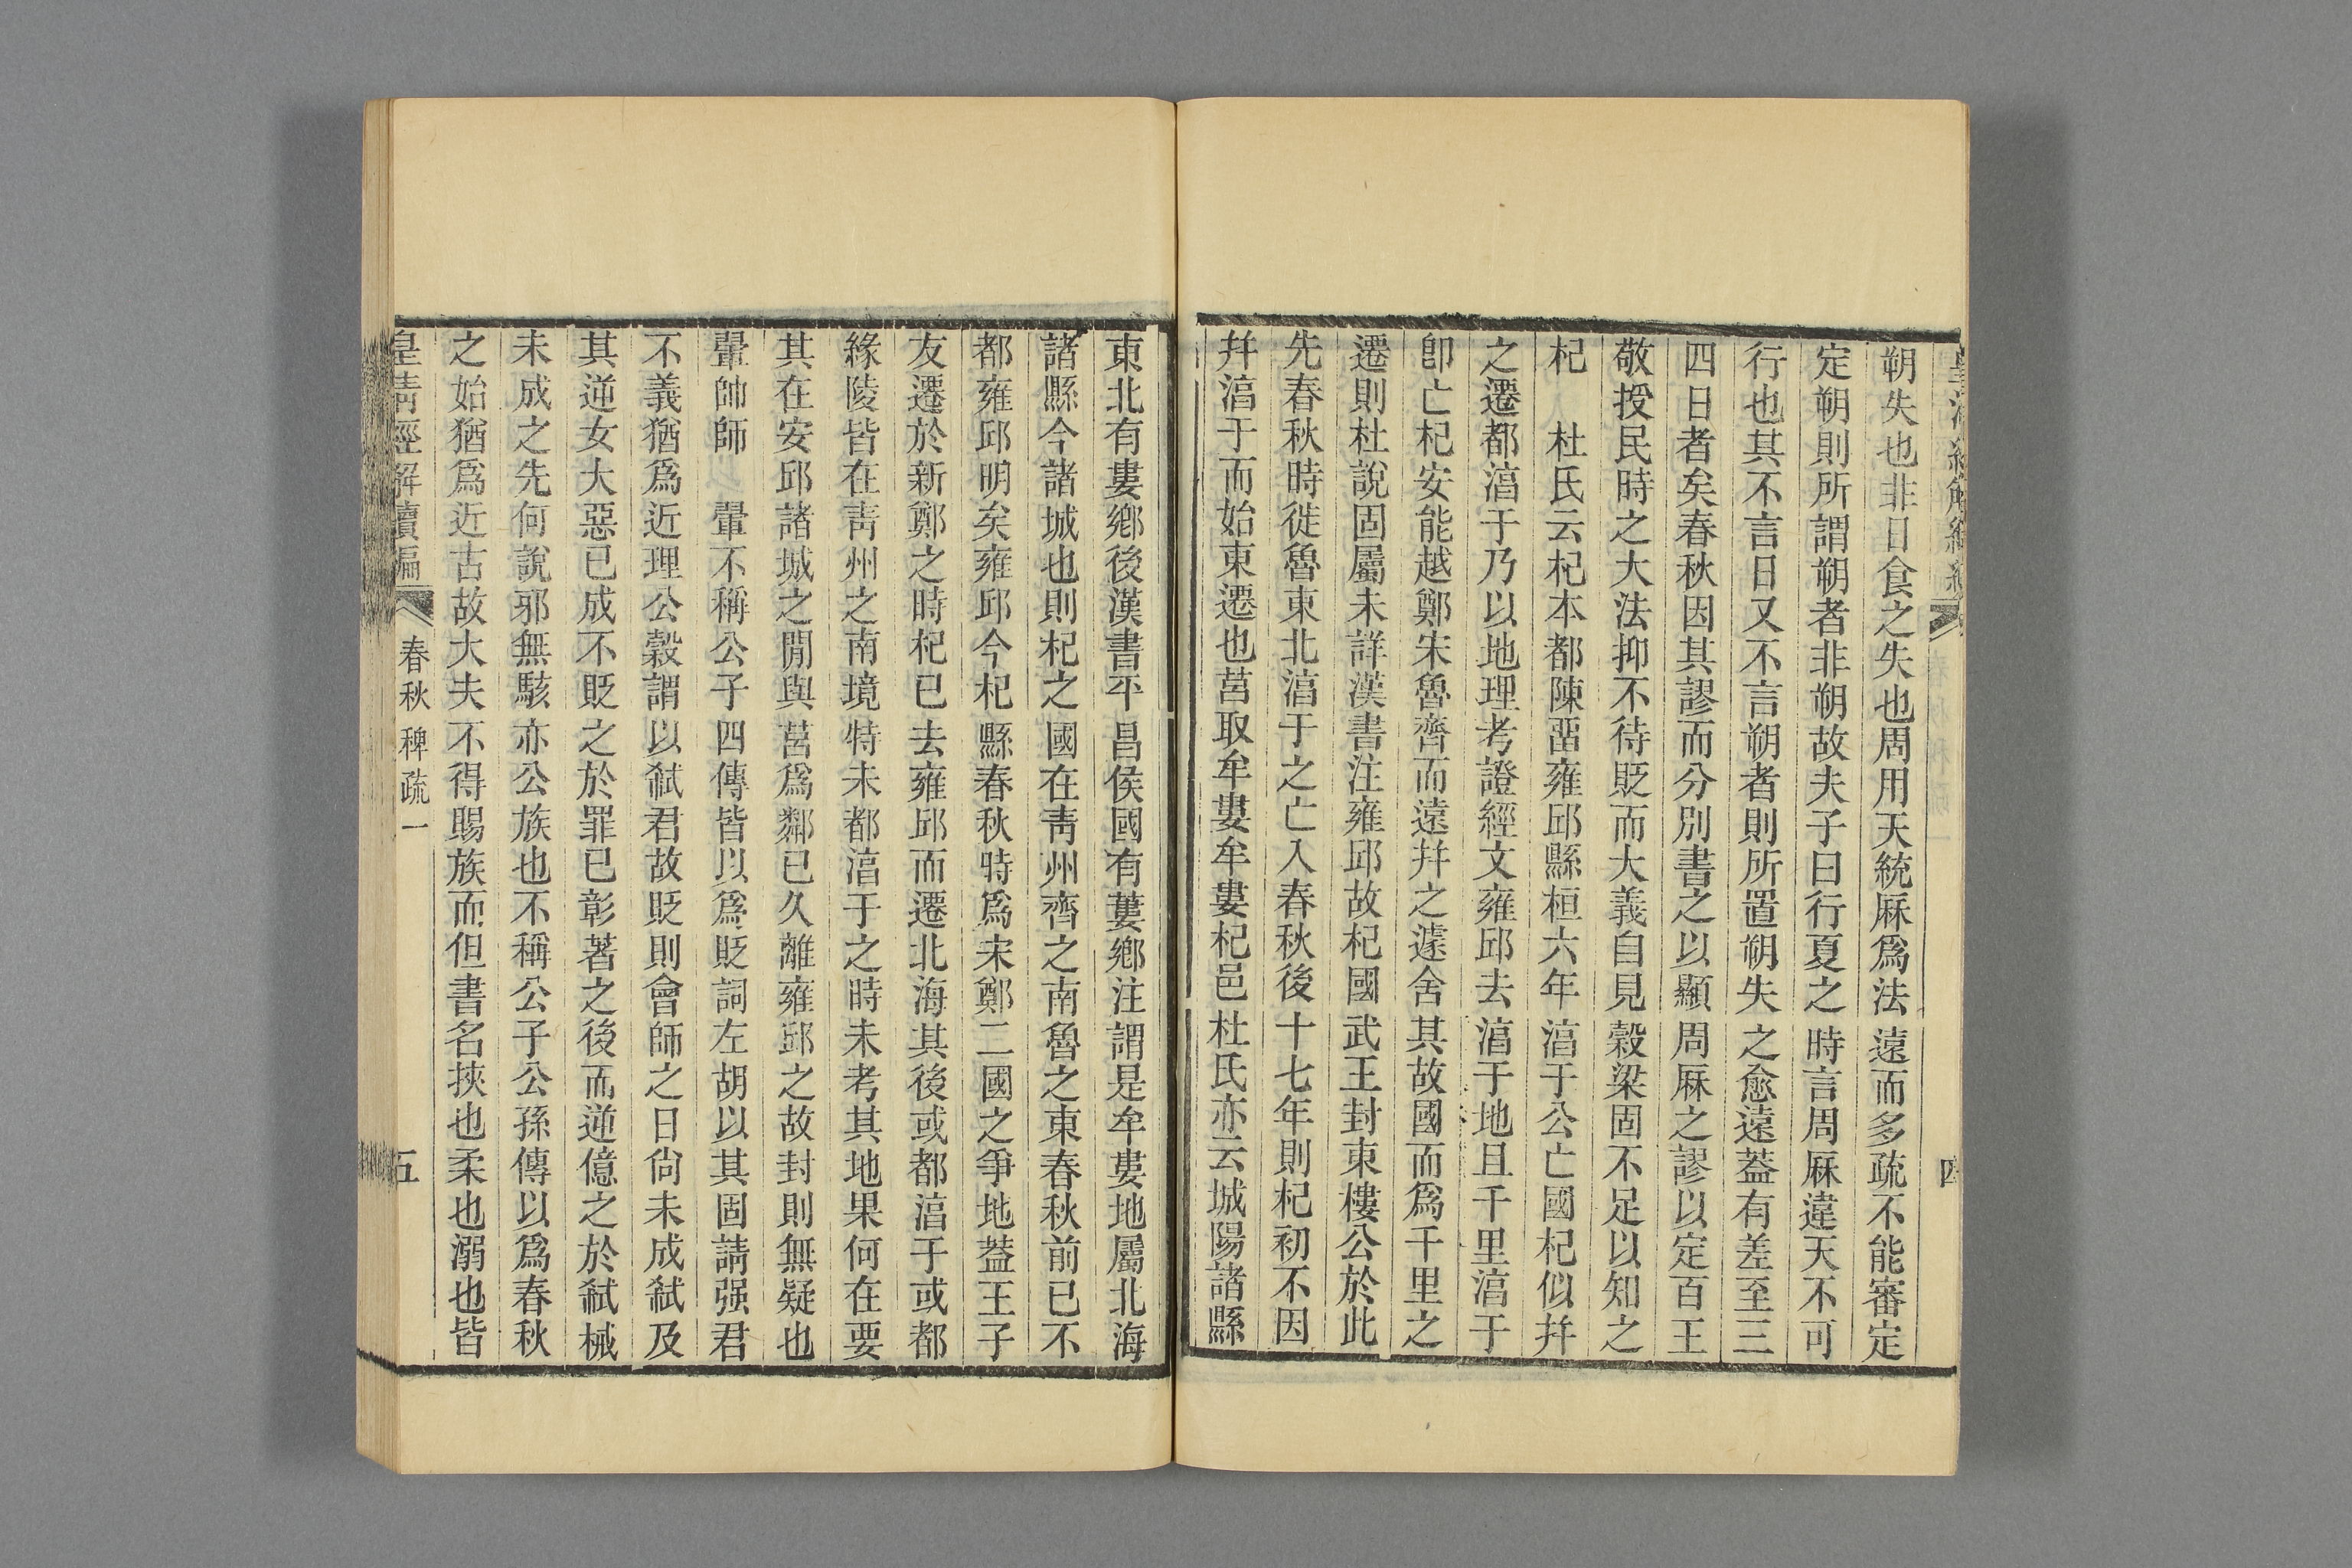 朔失也非日食之失也周用天統厤爲法遠而多疏不能審定
定朔則所謂朔者非朔故夫子曰行夏之時言周厤違天不可
行也其不言日又不言朔者則所置朔失之愈遠葢有差至三
四日者矣春秋因其謬而分別書之以顯周厤之謬以定百王
敬授民時之大法抑不待貶而大義自見穀梁固不足以知之
杞　杜氏云杞本都陳畱雍邱縣桓六年淳于公亡國杞似幷
之遷都淳于乃以地理考證經文雍邱去淳于地且千里淳于
卽亡杞安能越鄭宋魯齊而遠幷之遽舍其故國而爲千里之
遷則杜說固屬未詳漢書注雍邱故杞國武王封東樓公於此
先春秋時徙魯東北淳于之亡入春秋後十七年則杞初不因
幷淳于而始東遷也莒取牟婁牟婁杞邑杜氏亦云城陽諸縣
東北有婁鄉後漢書平昌侯國有蔞鄉注謂是牟婁地屬北海
諸縣今諸城也則杞之國在靑州齊之南魯之東春秋前已不
都雍邱明矣雍邱今杞縣春秋特爲宋鄭二國之爭地葢王子
友遷於新鄭之時杞已去雍邱而遷北海其後或都淳于或都
緣陵皆在靑州之南境特未都淳于之時未考其地果何在要
其在安邱諸城之閒與莒爲鄰已久離雍邱之故封則無疑也
翬帥師　翬不稱公子四傳皆以爲貶詞左胡以其固請强君
不義猶爲近理公穀謂以弒君故貶則會師之日尙未成弒及
其逆女大惡已成不貶之於罪已彰著之後而逆億之於弒械
未成之先何說邪無駭亦公族也不稱公子公孫傳以爲春秋
之始猶爲近古故大夫不得賜族而但書名挾也柔也溺也皆
皇淸經解續編　春秋稗疏一　五